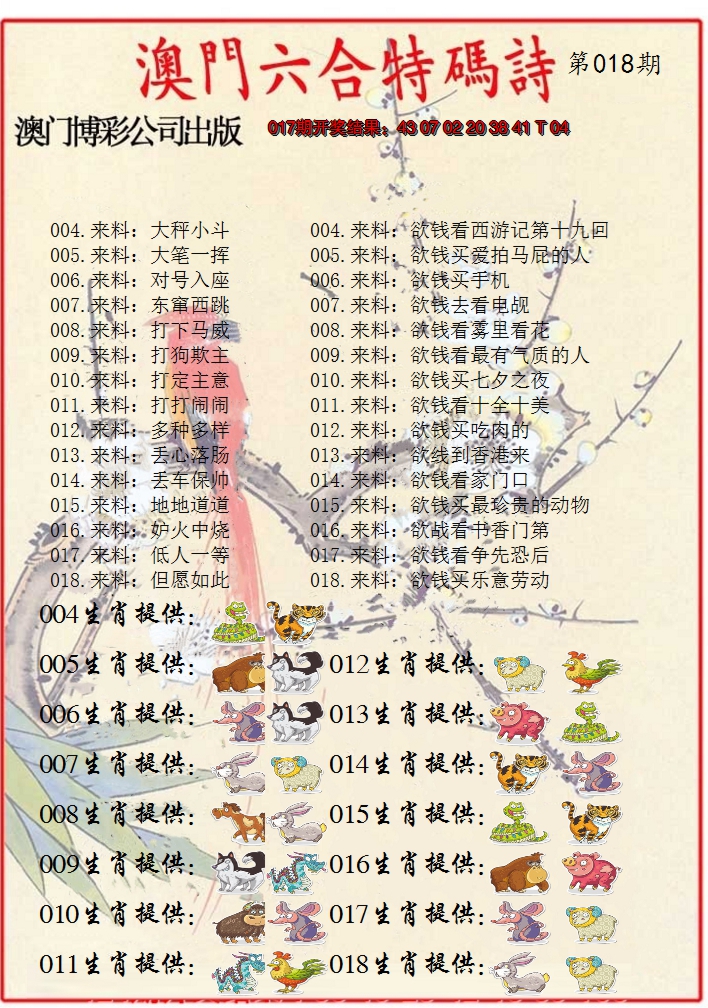 澳門六合特碼詩 第018期
澳门博彩公司出版 017期开奖结果：43 07 02 20 38 41 T 04
004.来料：大秤小斗 004.来料：欲钱看西游记第十九回
005.来料：大笔一挥 005.来料：欲钱买爱拍马屁的人
006.来料：对号入座 006.来料：欲钱买手机
007.来料：东窜西跳 007.来料：欲钱去看电觇
008.来料：打下马威 008.来料：欲钱看雾里看花
009.来料：打狗欺主 009.来料：欲钱看最有气质的人
010.来料：打定主意 010.来料：欲钱买七夕之夜
011.来料：打打闹闹 011.来料：欲钱看十全十美
012.来料：多种多样 012.来料：欲钱买吃肉的
013.来料：丢心落肠 013.来料：欲线到香港来
014.来料：丢车保帅 014.来料：欲钱看家门口
015.来料：地地道道 015.来料：欲钱买最珍贵的动物
016.来料：妒火中烧 016.来料：欲战看书香门第
017.来料：低人一等 017.来料：欲钱看争先恐后
018.来料：但愿如此 018.来料：欲钱买乐意劳动
004生肖提供：
005生肖提供： 012生肖提供：
006生肖提供： 013生肖提供：
007生肖提供： 014生肖提供：
008生肖提供： 015生肖提供：
009生肖提供： 016生肖提供：
010生肖提供： 017生肖提供：
011生肖提供： 018生肖提供：